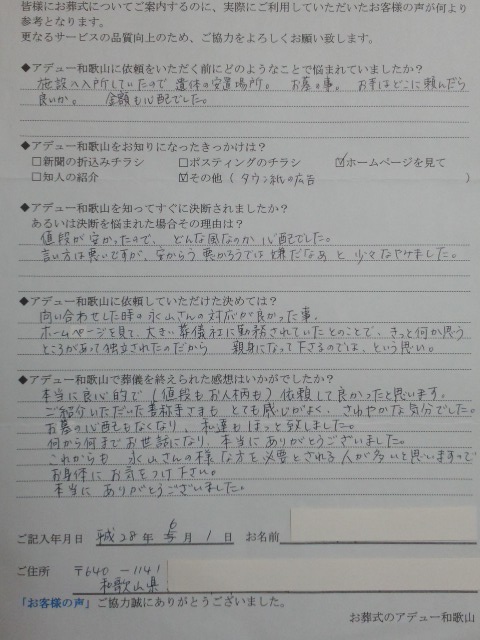 皆様にお葬式についてご案内するのに、実際にご利用していただいたお客様の声が何より
参考となります。
更なるサービスの品質向上のため、ご協力をよろしくお願い致します。
◆アデュー和歌山に依頼をいただく前にどのようなことで悩まれていましたか？
施設へ入所していたので 遺体の安置場所。 お墓の事。 お寺はどこに頼んだら
良いか。 金額も心配でした。
◆アデュー和歌山をお知りになったきっかけは？
□新聞の折込みチラシ □ポスティングのチラシ ☑ホームページを見て
□知人の紹介 ☑その他（ タウン紙の広告 ）
◆アデュー和歌山を知ってすぐに決断されましたか？
あるいは決断を悩まれた場合その理由は？
値段が安かったので、どんな風なのか 心配でした。
言い方は悪いですが、安かろう 悪かろうでは 嫌だなぁ と 少々なやみました。
◆アデュー和歌山に依頼していただけた決めては？
向い合わせした時の 永山さんの 対応が良かった事。
ホームページを見て、大きい葬儀社に勤務されていたとのことで、きっと何か思う
ところがあって独立されたのだから 親身になって下さるのでは、という思い。
◆アデュー和歌山で葬儀を終えられた感想はいかがでしたか？
本当に良心的で（値段もお人柄も）依頼して良かったと思います。
ご紹介いただいた 様もとても感じがよく、さわやかな気分でした。
お墓の心配もなくなり、私達もほっと致しました。
何から何までお世話になり、本当にありがとうございました。
これからも 永山さんの様な方を必要とされる人が多いと思いますので
お身体に お気をつけ下さい。
本当に ありがとうございました。
ご記入年月日 平成28年 6月 1日 お名前
ご住所 〒640－1141
和歌山県
「お客様の声」ご協力誠にありがとうございました。
お葬式のアデュー和歌山